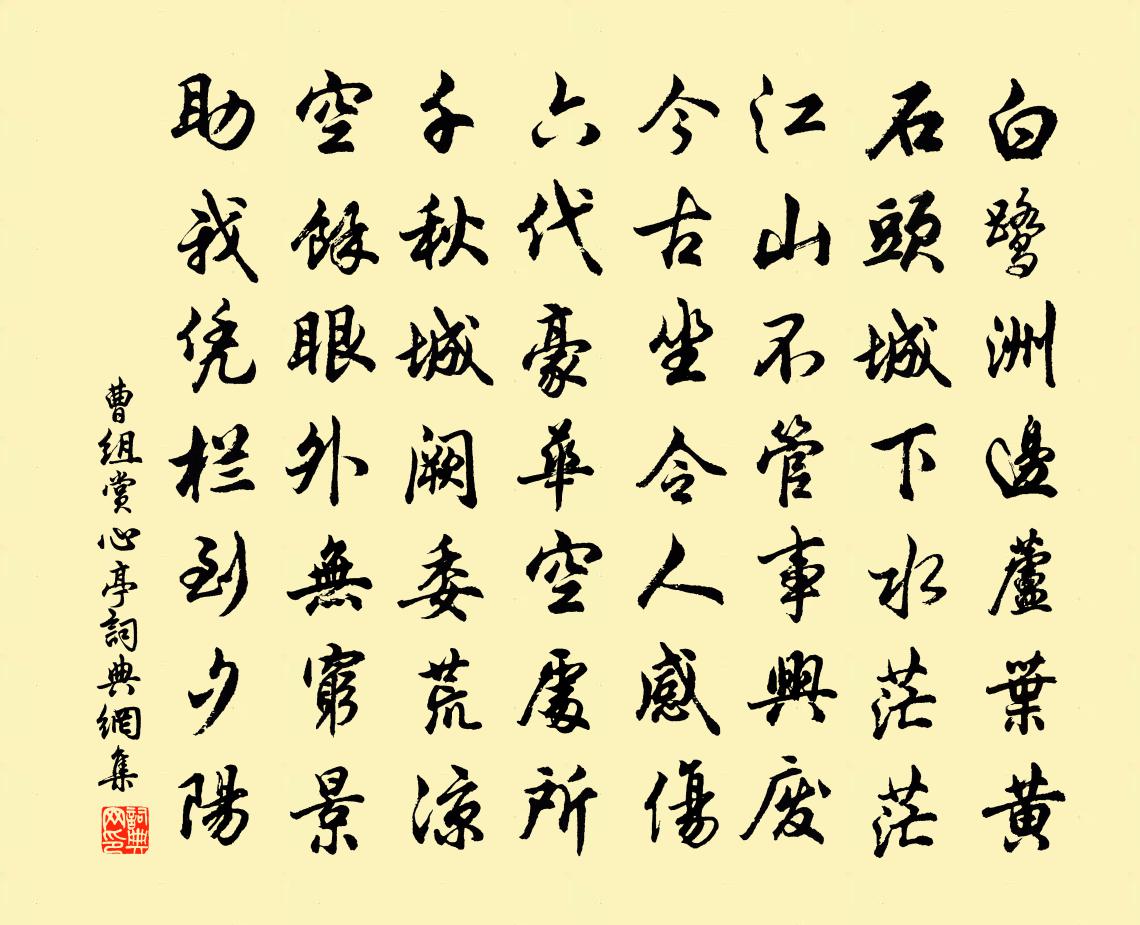 白鹭洲邊蘆葉黄
石頭城下水茫茫
江山不管事興废
今古坐令人感傷
六代豪華空處所
千秋城阙委荒凉
空餘眼外無窮景
助我凭栏到夕陽
曹組賞心亭詞典網集
詞典网印